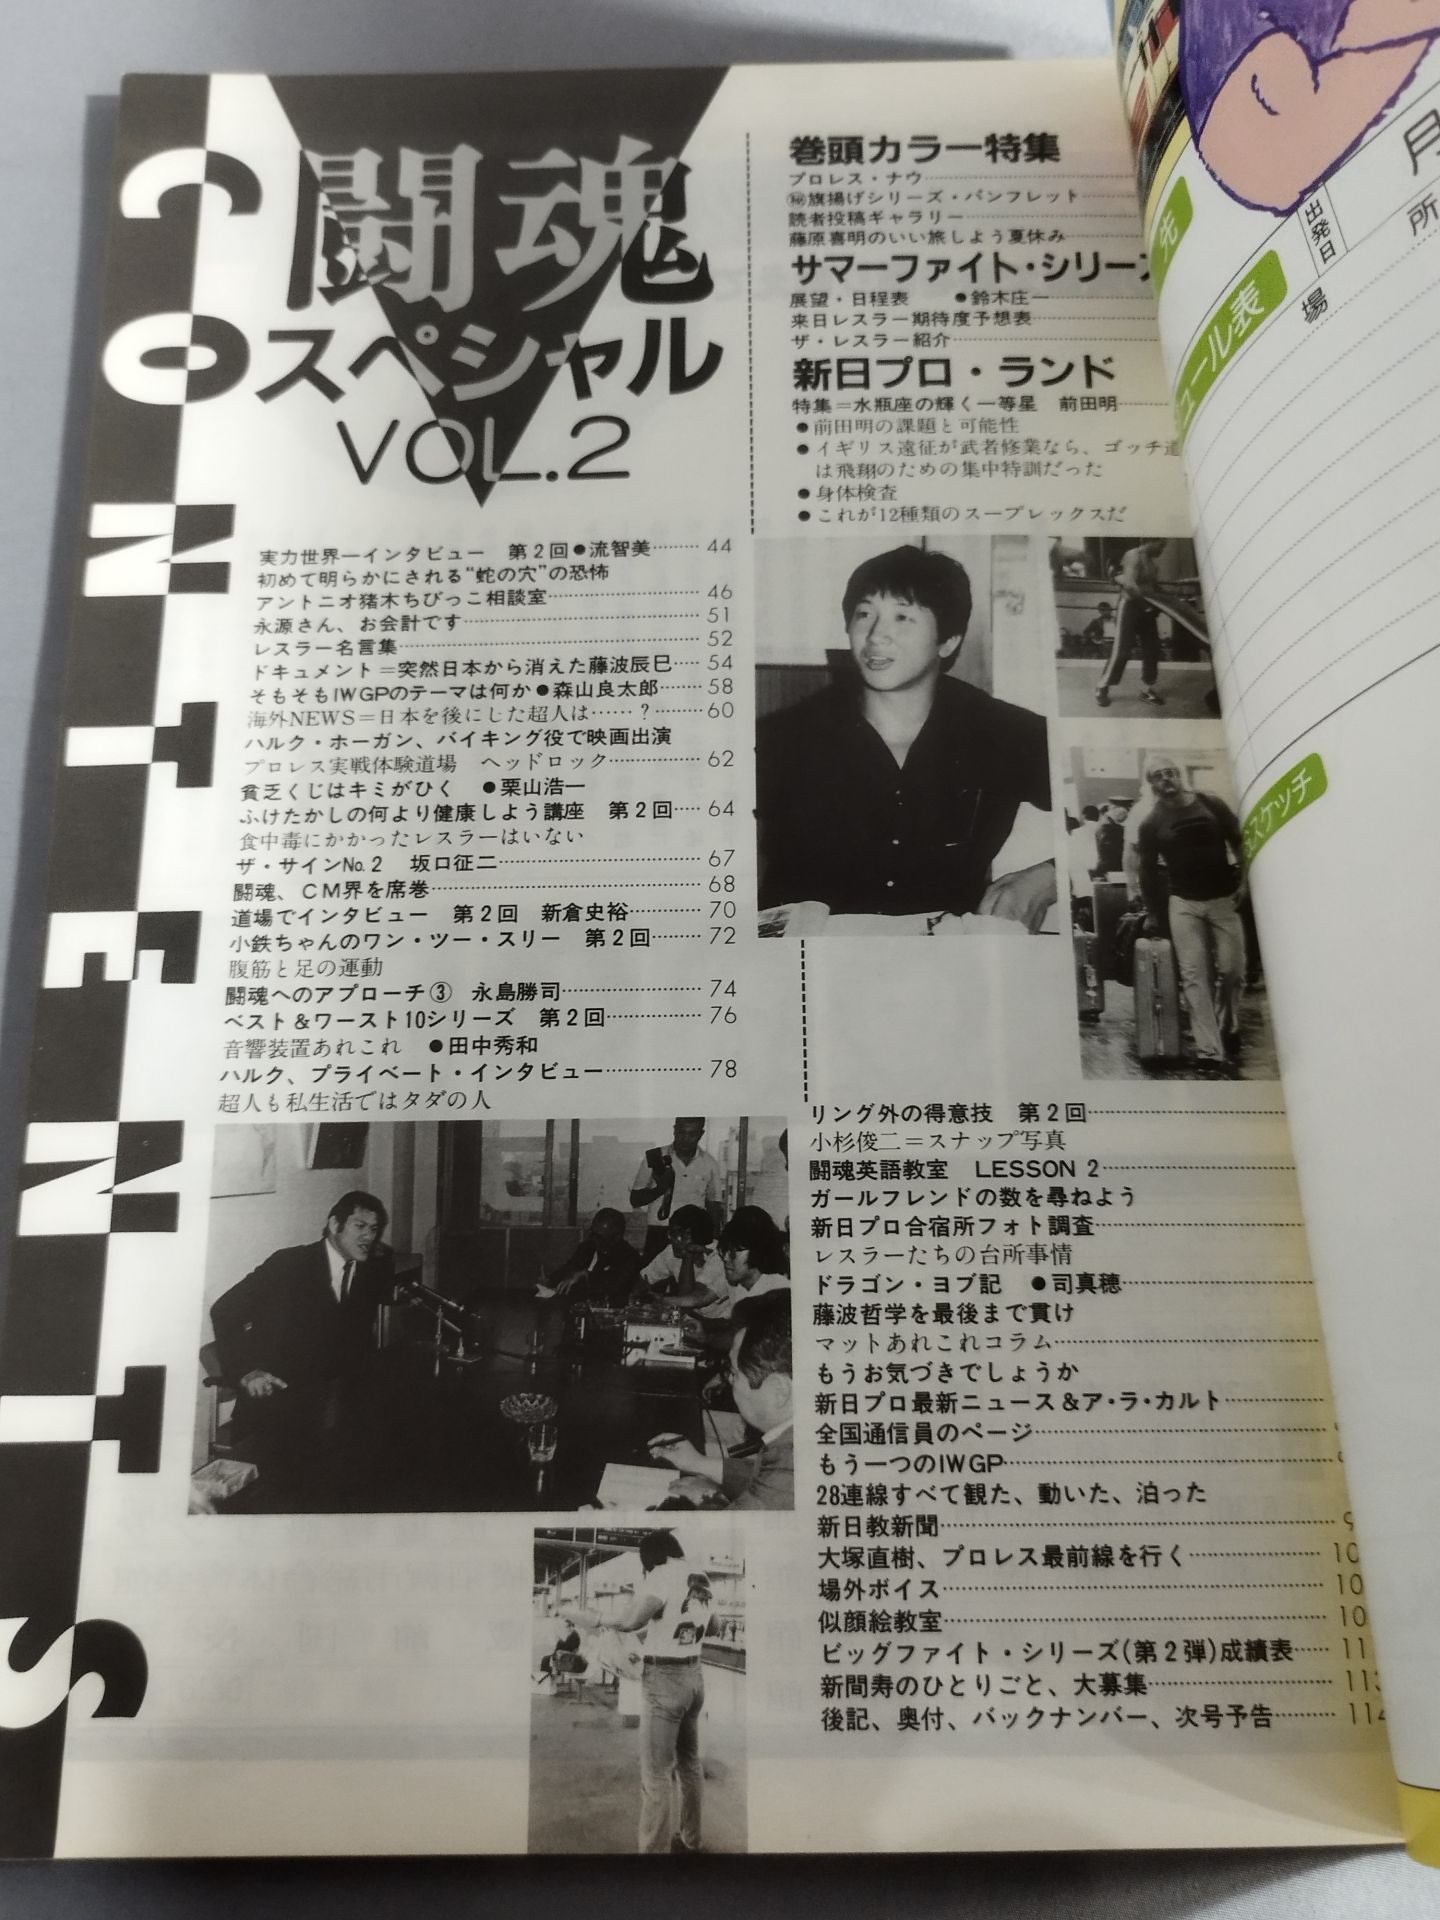 CONTENTS
闘魂
スペシャル
VOL.2
実力世界一インタビュー 第2回●流智美……… 44
初めて明らかにされる“蛇の穴”の恐怖
アントニオ猪木ちびっこ相談室……… 46
永源さん、お会計です……… 51
レスラー名言集……… 52
ドキュメント＝突然日本から消えた藤波辰巳…… 54
そもそもIWGPのテーマは何か●森山良太郎……… 58
海外NEWS＝日本を後にした超人は……？……… 60
ハルク・ホーガン、バイキング役で映画出演
プロレス実戦体験道場 ヘッドロック……… 62
貧乏くじはキミがひく ●栗山浩一
ふけたかしの何より健康しよう講座 第2回…… 64
食中毒にかかったレスラーはいない
ザ・サインNo.2 坂口征二……… 67
闘魂、CM界を席巻……… 68
道場でインタビュー 第2回 新倉史裕……… 70
小鉄ちゃんのワン・ツー・スリー 第2回……… 72
腹筋と足の運動
闘魂へのアプローチ③ 永島勝司……… 74
ベスト＆ワースト10シリーズ 第2回……… 76
音響装置あれこれ ●田中秀和
ハルク、プライベート・インタビュー……… 78
超人も私生活ではタダの人
巻頭カラー特集
プロレス・ナウ………
㊙旗揚げシリーズ・パンフレット………
読者投稿ギャラリー………
藤原喜明のいい旅しよう夏休み………
サマーファイト・シリーズ
展望・日程表 ●鈴木庄一
来日レスラー期待度予想表………
ザ・レスラー紹介………
新日プロ・ランド
特集＝水瓶座の輝く一等星 前田明………
●前田明の課題と可能性
●イギリス遠征が武者修業なら、ゴッチ道
は飛翔のための集中特訓だった
●身体検査
●これが12種類のスープレックスだ
リング外の得意技 第2回………
小杉俊二＝スナップ写真
闘魂英語教室 LESSON 2………
ガールフレンドの数を尋ねよう
新日プロ合宿所フォト調査………
レスラーたちの台所事情
ドラゴン・ヨブ記 ●司真穂………
藤波哲学を最後まで貫け
マットあれこれコラム………
もうお気づきでしょうか
新日プロ最新ニュース＆ア・ラ・カルト………
全国通信員のページ………
もう一つのIWGP………
28連線すべて観た、動いた、泊った
新日教新聞……… 9
大塚直樹、プロレス最前線を行く……… 10
場外ボイス……… 10
似顔絵教室……… 10
ビッグファイト・シリーズ(第2弾)成績表…… 11
新間寿のひとりごと、大募集……… 113
後記、奥付、バックナンバー、次号予告……… 114
先
出発日
月
所
場
ュール表
スケッチ